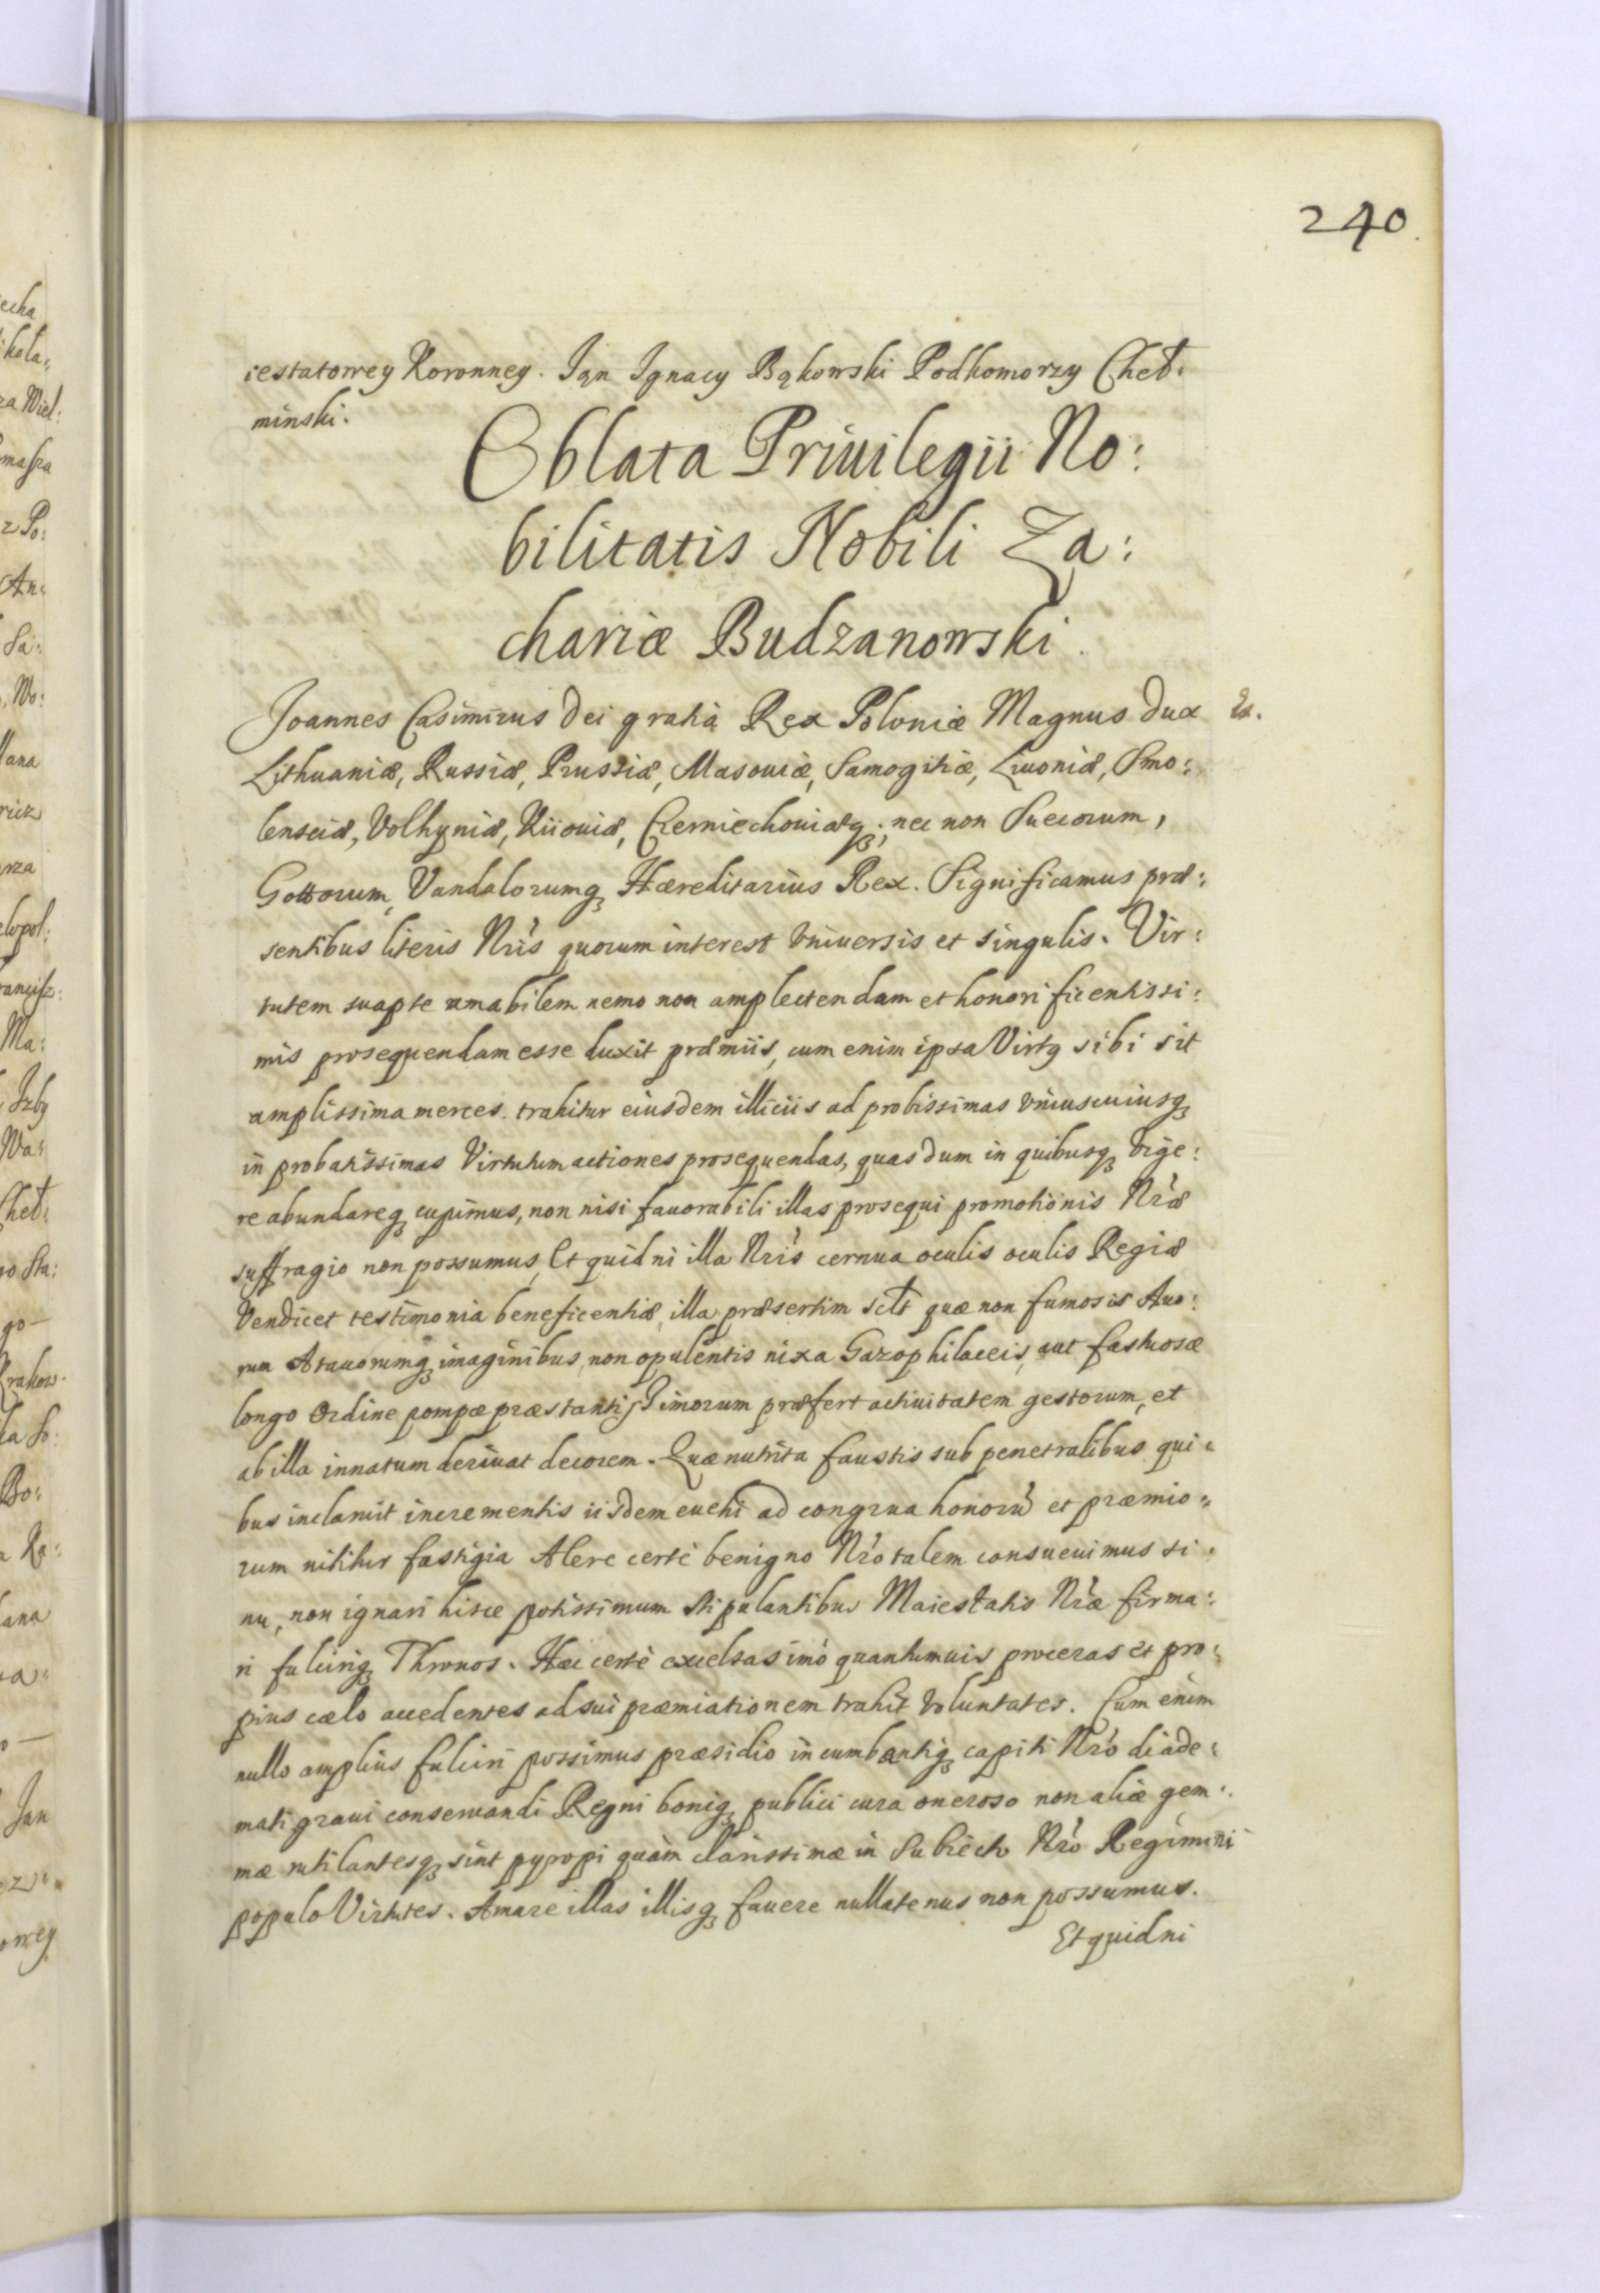 240
cestatowey Koronney. Jan Ignacy Bąkowski Podkomorzy Cheł:
minski.
Oblata Priuilegii No:
bilitatis Nobili Za:
chariæ Budzanowski.
Joannes Casimirus Dei gratia Rex Poloniæ Magnus Dux
Lithuaniæ, Russiæ, Prussiæ, Masouiæ, Samogitiæ, Liuoniæ, Smo:
lensciæ, Volhyniæ, Kiiouiæ, Czerniechouiæq; nec non Suecorum,
Gottorum, Vandalorumq Hæreditarius Rex. Significamus præ:
sentibus literis Nris quorum interest Vniuersis et singulis. Vir:
tutem suapte amabilem nemo non amplectendam et honorificentissi:
mis prosequendam esse duxit præmiis, cum enim ipsa Virtq sibi sit
amplissima merces. trahitur eiusdem illiciis ad probissimas Vniuscuiusq
in probatissimas Virtutum actiones prosequendas, quas dum in quibusq Vige:
re abundareq cupimus, non nisi fauorabili illas prosequi promotionis Nræ
suffragio non possumus, Et quidni illa Nris cernua oculis oculis Regiæ
Vendicet testimonia beneficentiæ, illa præsertim sclt quæ non fumosis Auo:
rum Atauorumq imaginibus, non opulentis nixa Gazophilaceis, aut fastuosæ
longo Ordine pompæ præstantissimorum præfert actiuitatem gestorum, et
ab illa innatum deriuat decorem. Quæ nutrita faustis sub penetralibus qui:
bus inclaruit incrementis iisdem euehi ad congrua honorũ et præmio:
rum nititur fastigia Alere certè benigno Nro talem consueuimus si:
nu, non ignari hisce potissimum stipulantibus Maiestatis Nræ firma:
ri fulciriq Thronos. Hæc certè excelsas imò quantumuis proceras et pro:
pius cælo accedentes ad sui præmiationem trahit Voluntates. Cum enim
nullo amplius fulciri possimus præsidio incumbantiq capiti Nro diade:
mati graui conseruandi Regni boniq publici cura oneroso non aliæ gem:
mæ rutilantesq sint pyropi quàm clarissimæ in Subiecto Nro Regimini
populo Virtutes. Amare illas illisq fauere nullatenus non possumus.
Et quidni